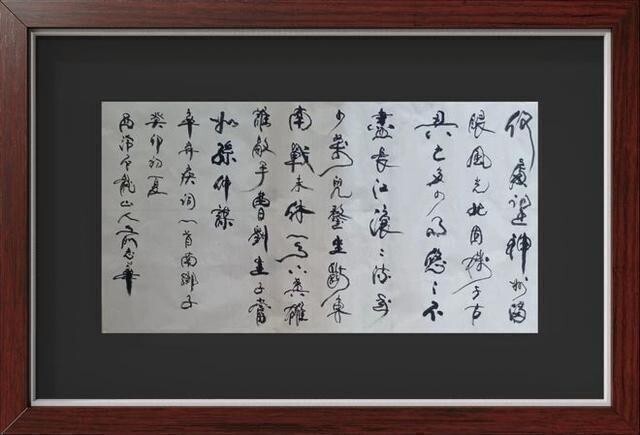 何處望神州滿
眼風光北固樓千古
興亡多少事悠〻不
盡長江滾〻流年
少萬兜鍪坐斷東
南戰未休天下英雄
誰敵手曹劉生子當
如孫仲謀
辛弃疾词一首南鄉子
癸卯初夏
山人